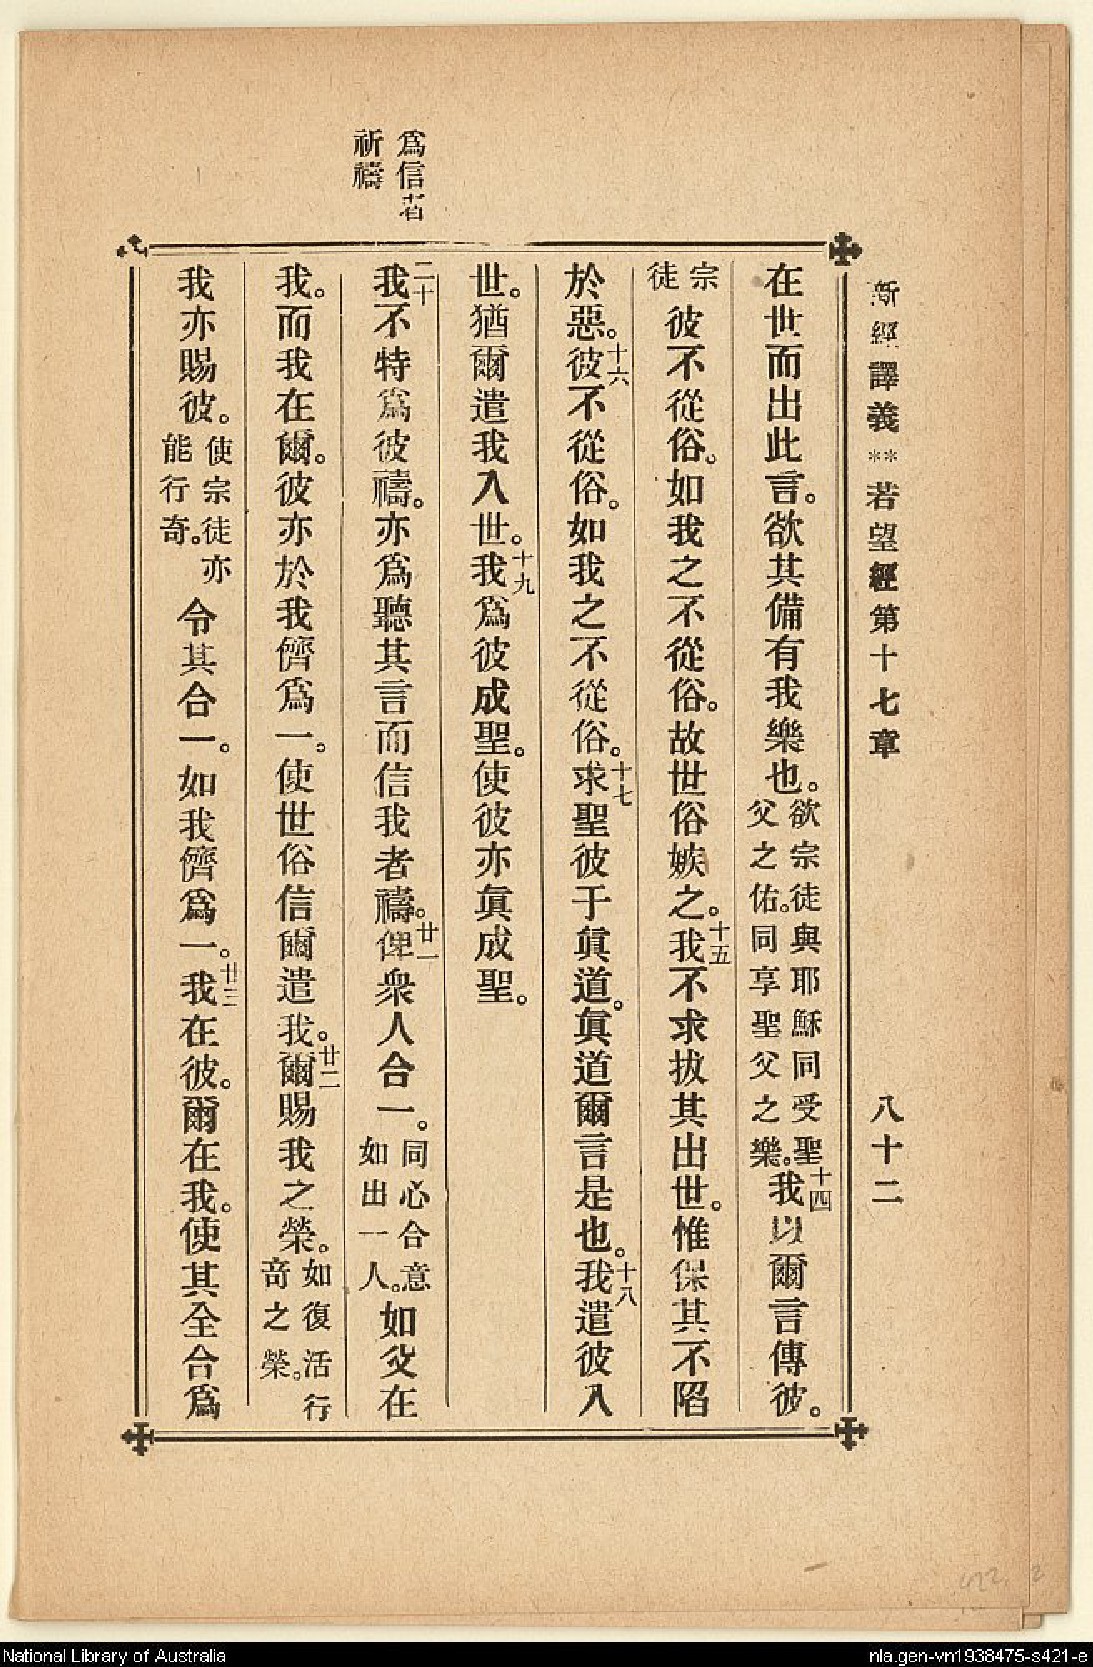 新經譯義**若望經第十七章 八十二
爲信者
祈禱
在世而出此言。欲其備有我樂也。欲宗徒與耶穌同受聖父之佑。同享聖父之樂。十四我以爾言傳彼。
宗徒彼不從俗。如我之不從俗。故世俗嫉之。十五我不求拔其出世。惟保其不陷
於惡。十六彼不從俗。如我之不從俗。十七求聖彼于眞道。眞道爾言是也。十八我遣彼入
世。猶爾遣我入世。十九我爲彼成聖。使彼亦眞成聖。
二十我不特爲彼禱。亦爲聽其言而信我者禱。廿一俾衆人合一。同心合意如出一人。如父在
我。而我在爾。彼亦於我儕爲一。使世俗信爾遣我。廿二爾賜我之榮。如復活行奇之榮。
我亦賜彼。使宗徒亦能行奇。令其合一。如我儕爲一。廿三我在彼。爾在我。使其全合爲
National Library of Australia
nla.gen-vn1938475-s421-e